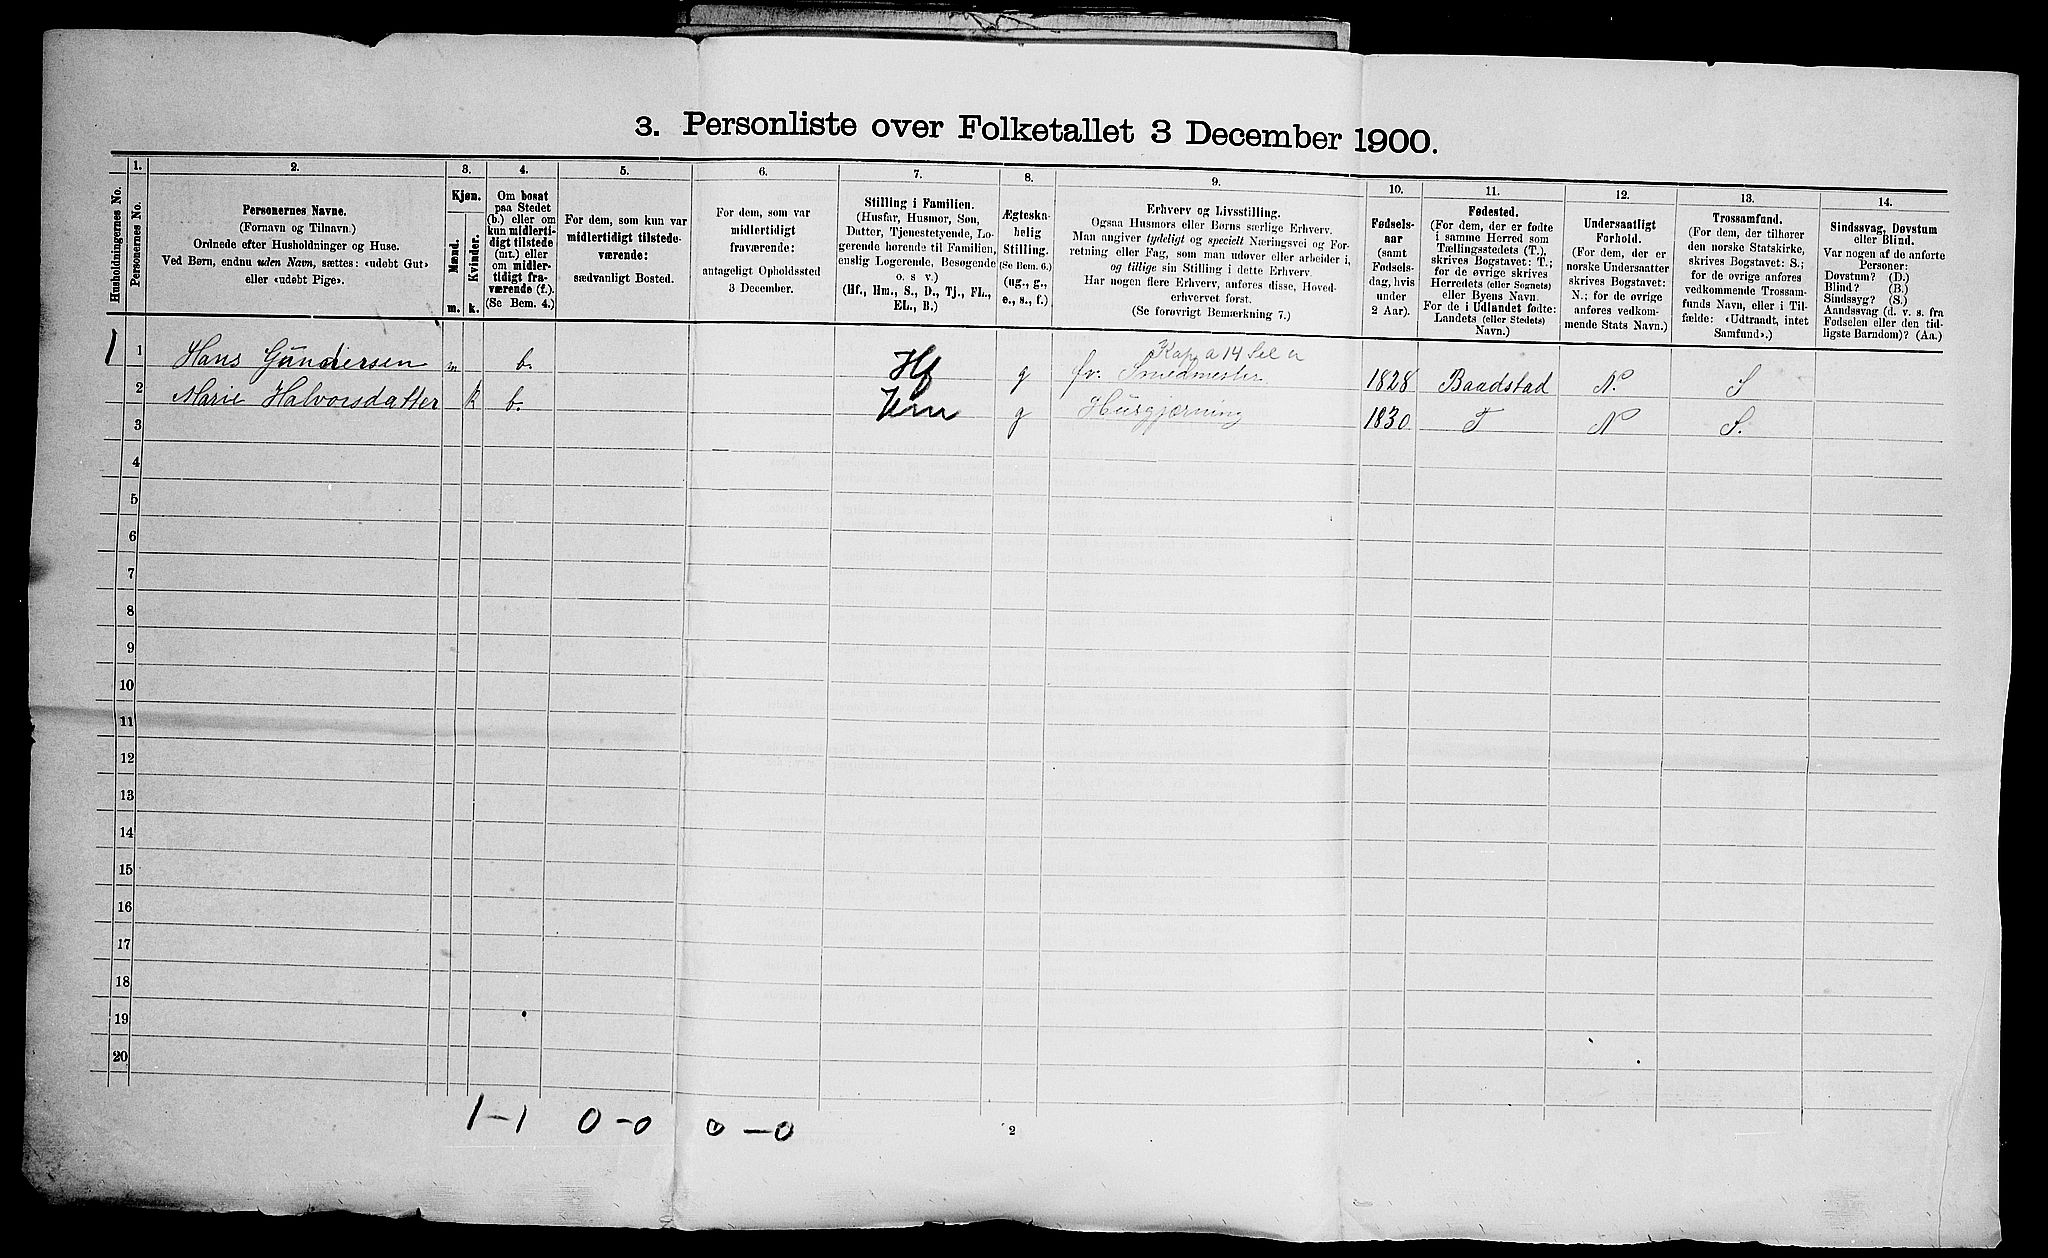 3. Personliste over Folketallet 3 December 1900.
Husholdningernes No.
1.
Personernes No.
2.
Personernes Navne.
(Fornavn og Tilnavn.)
Ordnede efter Husholdninger og Huse.
Ved Børn, endnu uden Navn, sættes: «udøbt Gut»
eller «udøbt Pige».
3.
Kjøn.
Mænd.
Kvinder.
m. k.
4.
Om bosat
paa Stedet
(b.) eller om
kun midlerti-
digt tilstede
(mt.) eller
om midler-
tidigt fra-
værende (f.).
(Se Bem. 4.)
5.
For dem, som kun var
midlertidigt tilstede-
værende:
sædvanligt Bosted.
6.
For dem, som var
midlertidigt
fraværende:
antageligt Opholdssted
3 December.
7.
Stilling i Familien.
(Husfar, Husmor, Søn,
Datter, Tjenestetyende, Lo-
gerende hørende til Familien,
enslig Logerende, Besøgende
o. s v.)
(Hf., Hm., S., D., Tj., FL.,
EL., B.)
8.
Ægteska-
helig
Stilling.
(Se Bem. 6.)
(ug., g.,
e., s., f.)
9.
Erhverv og Livsstilling.
Ogsaa Husmors eller Børns særlige Erhverv.
Man angiver tydeligt og specielt Næringsvei og For-
retning eller Fag, som man udøver eller arbeider i,
og tillige sin Stilling i dette Erhverv.
Har nogen flere Erhverv, anføres disse, Hoved-
erhvervet først.
(Se forøvrigt Bemærkning 7.)
10.
Fødsels-
aar
(samt
Fødsels-
dag, hvis
under
2 Aar).
11.
Fødested.
(For dem, der er fødte
i samme Herred som
Tællingsstedets (T.),
skrives Bogstavet: T.;
for de øvrige skrives
Herredets (eller Sognets)
eller Byens Navn.
For de i Udlandet fødte:
Landets (eller Stedets)
Navn.)
12.
Undersaatligt
Forhold.
(For dem, der er
norske Undersaatter
skrives Bogstavet:
N.; for de øvrige
anføres vedkom-
mende Stats Navn.)
13.
Trossamfund.
(For dem, der tilhører
den norske Statskirke,
skrives Bogstavet: S.;
for de øvrige anføres
vedkommende Trossam-
funds Navn, eller i Til-
fælde: «Udtraadt, intet
Samfund».)
14.
Sindssvag, Døvstum
eller Blind.
Var nogen af de anførte
Personer:
Døvstum? (D.)
Blind? (B.)
Sindssyg? (S.)
Aandssvag (d. v. s. fra
Fødselen eller den tid-
ligste Barndom)? (Aa.)
1 1 Hans Gundersen m b. Hf g fv. Smedmester 1828 Baadstad N. S
2 Marie Halvorsdatter k b. Hm g Husgjerning 1830 T N S.
3
4
5
6
7
8
9
10
11
12
13
14
15
16
17
18
19
20
1-1 0-0 0-0
2